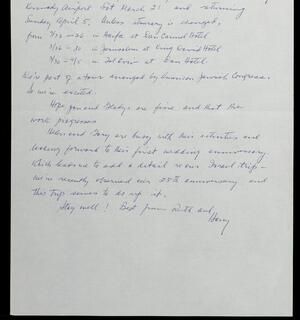 Kennedy Airport Sat March 21 and returning
Sunday April 5. Unless itinerary is changed,
from 3/22 - 26 in Haifa at Dan Carmel Hotel
3/26 - 30 in Jerusalem at King David Hotel
3/30 - 4/5 in Tel Aviv at Dan Hotel.
We're part of a tour arranged by American Jewish Congress.
So we're excited.
Hope you and Gladys are fine and that the
work progresses.
and are busy with their activities and
looking forward to their first wedding anniversary,
which leads me to add a detail re our Israel trip -
we recently observed our 25th anniversary and
this trip serves to tie up it.
Stay well! Best from Ruth and